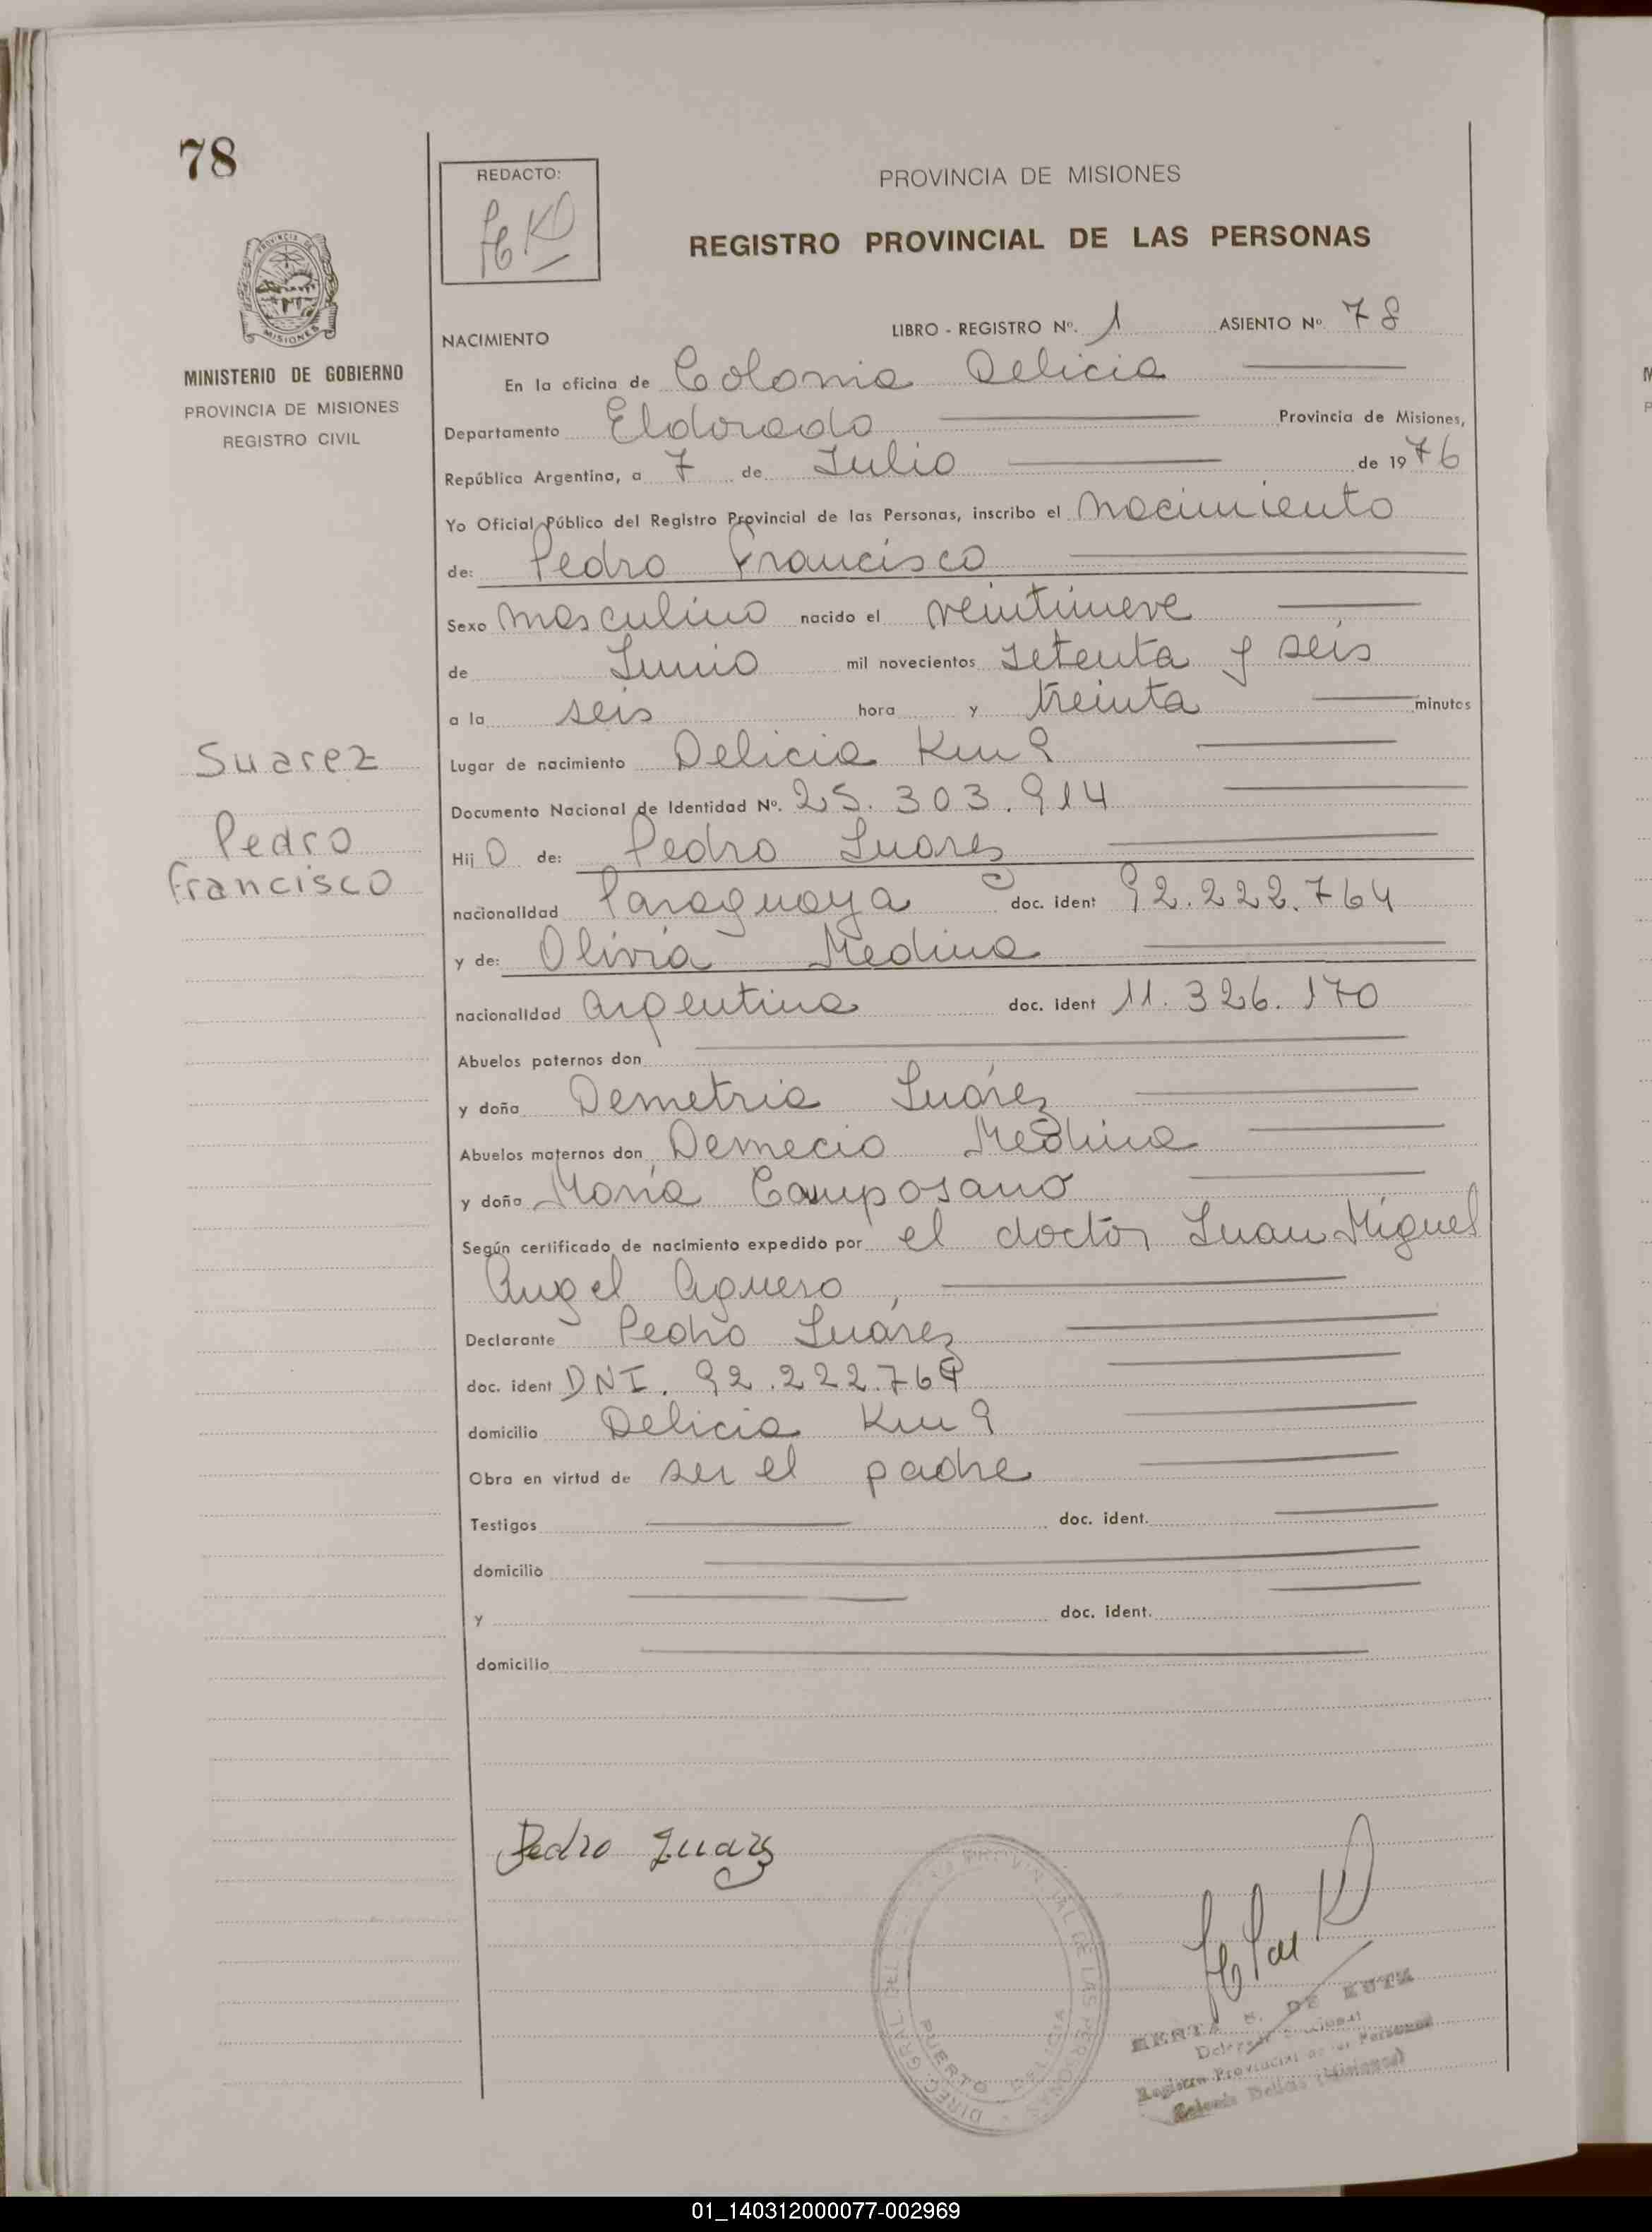 78
REDACTO:
PROVINCIA DE MISIONES
REGISTRO PROVINCIAL DE LAS PERSONAS
MISIONES
MINISTERIO DE GOBIERNO
PROVINCIA DE MISIONES
REGISTRO CIVIL
NACIMIENTO
LIBRO - REGISTRO Nº. 1 ASIENTO Nº 78
En la oficina de Colonia Delicia
Departamento Eldorado Provincia de Misiones,
República Argentina, a 7 de Julio de 1976
Yo Oficial Público del Registro Provincial de las Personas, inscribo el nacimiento
de: Pedro Francisco
Sexo masculino nacido el
de Junio mil novecientos setenta y seis
a la seis hora y treinta minutos
Lugar de nacimiento Delicia Km 9
Documento Nacional de Identidad Nº. 25.303.914
Suarez
Pedro
Francisco
Hij o de: Pedro Suarez
nacionalidad Paraguaya doc. ident 92.222.764
y de: Olivia Medina
nacionalidad Argentina doc. ident 11.326.170
Abuelos paternos don
y doña Demetria Suárez
Abuelos maternos don Demecio Medina
y doña María Camposano
Según certificado de nacimiento expedido por el doctor Juan Miguel
Angel Aguero,
Declarante Pedro Suárez
doc. ident DNI. 92.222.764
domicilio Delicia Km 9
Obra en virtud de ser el padre
Testigos doc. ident.
domicilio
y doc. ident.
domicilio
Pedro Suarez
PUERTO DELICIA
DE LAS PERSONAS
Registro Provincial de las Personas
Colonia Delicia (Misiones)
01_140312000077-002969